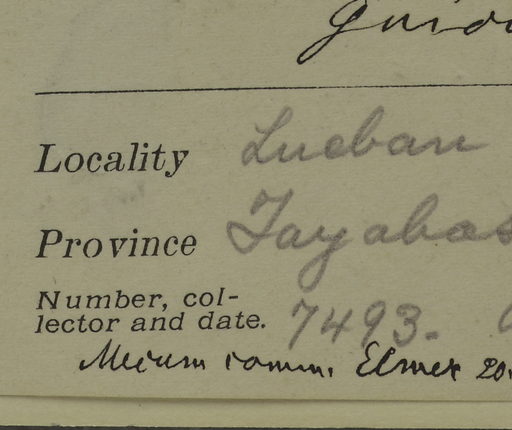 Locality Lucban
Province Tayabas
Number, col-
lector and date. 7493.
Mecum comm. Elmer 20.